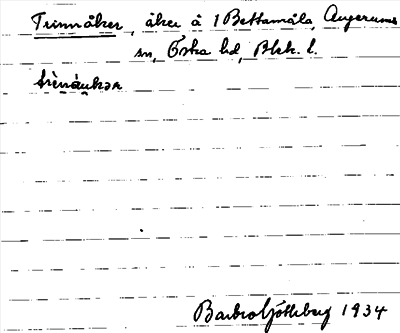 Trinnåker, åker å 1 Bettamåla, Augerums
sn, Östra hd, Blek. l.
trinåukər
Barbro Götheberg 1934